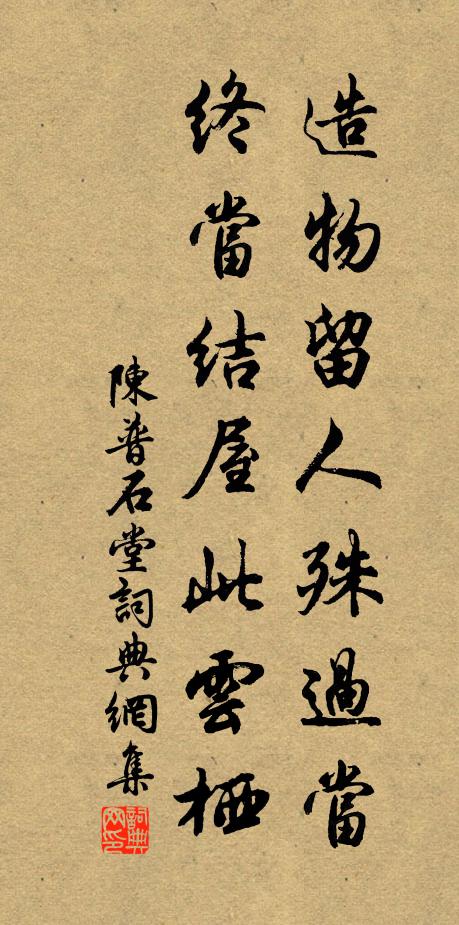 造物留人殊過當
終當結屋此雲栖
陳普石堂詞典網集
詞典網印